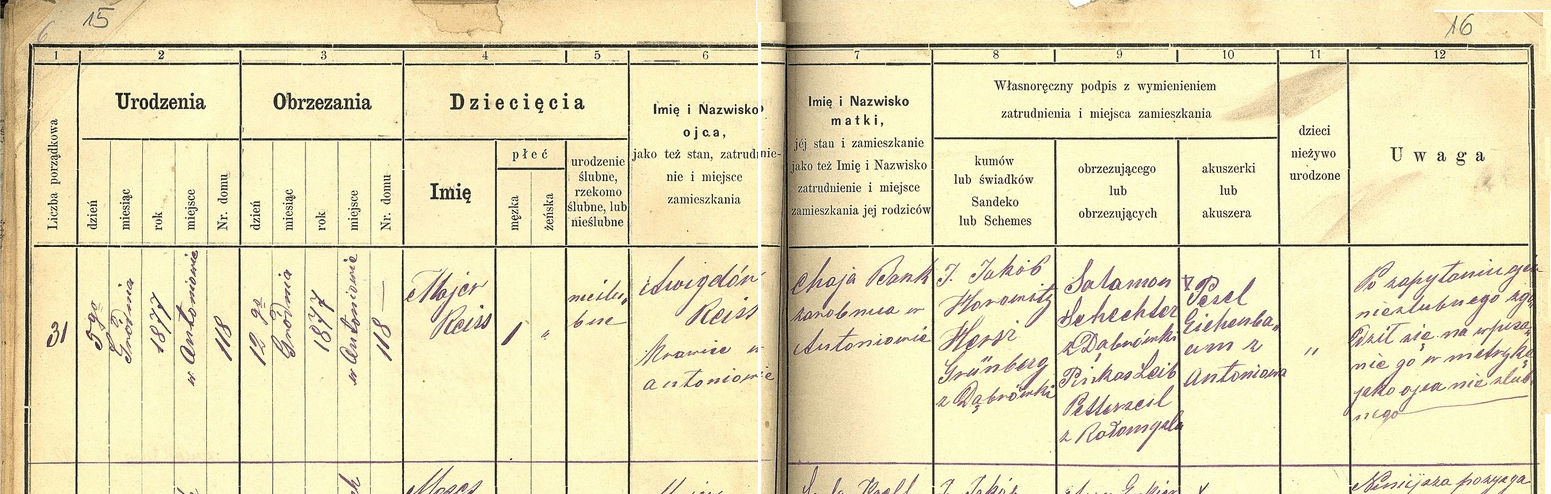 15
16
1
2
3
4
5
6
7
8
9
10
11
12
Liczba porządkowa
Urodzenia
dzień
miesiąc
rok
miejsce
Nr. domu
Obrzezania
dzień
miesiąc
rok
miejsce
Nr. domu
Dziecięcia
Imię
płeć
męzka
żeńska
urodzenie
ślubne,
rzekomo
ślubne, lub
nieślubne
Imię i Nazwisko
ojca,
jako też stan, zatrudnie-
nie i miejsce
zamieszkania
Imię i Nazwisko
matki,
jéj stan i zamieszkanie
jako też Imię i Nazwisko
zatrudnienie i miejsce
zamieszkania jej rodziców
Własnoręczny podpis z wymienieniem
zatrudnienia i miejsca zamieszkania
kumów
lub świadków
Sandeko
lub Schemes
obrzezującego
lub
obrzezujących
akuszerki
lub
akuszera
dzieci
nieżywo
urodzone
Uwaga
31
5go
Grudnia
1877
w Antoniowie
118
12go
Grudnia
1877
w Antoniowie
118
Majer
Reiss
1
"
nieślu,
bne
Awigdór
Reiss
Krawiec w
Antoniowie
Chaja Bank
zarobnica w
Antoniowie
J. Jakób
Horowitz
Hersz
Grünberg
z Dąbrówki
Salamon
Schechter
z Dąbrówki
Pinkas Leib
z Radomyśla
Pesel
Eichenba,
um z
Antoniowa
"
Po zapytaniu ojca
nieślubnego zgo,
dził się na wpisa,
nie go w metrykę
jako ojca nie ślub,
nego
Moses
J. Jakób
Niniejsza